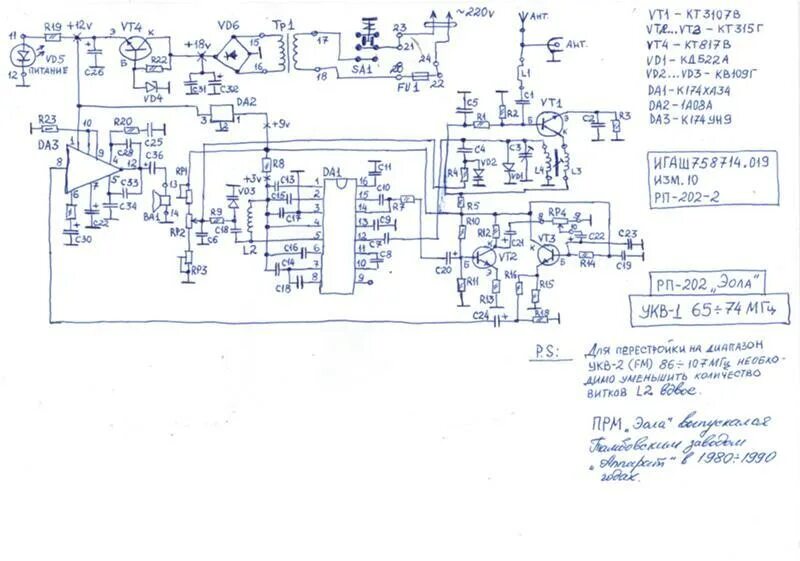 VT1 - КТ3107В
VT2, VT3 - КТ315Г
VT4 - КТ817В
VD1 - КД522А
VD2...VD3 - КВ109Г
DA1 - К174ХА34
DA2 - 1А08А
DA3 - К174УН9
ИГАШ758714.019
ИЗМ.10
РП-202-2
РП-202 „Эола"
УКВ-1 65÷74 МГц
P.S: Для перестройки на диапазон
УКВ-2 (FM) 86÷107 МГц необхо-
димо уменьшить количество
витков L2 вдвое.
ПРМ „Эола" выпускалая
Тамбовским заводом
„Аппарат" в 1980÷1990
годах.
11 R19 +12v VT4 VD6 Тр1 23 ~220v
Э К Б
VD5 ПИТАНИЕ 12 C26 R22 VD4
+18v 15 16 17 18 C31 C32
SA1 21 20 24 22 FU1
Ант. Ант. L1 C1
DA2 +9v
R23 DA3 R20 C25 C28 C36 C33 C34 C30 C22
BA1 13 14
RP1 RP2 RP3
R8 +3v VD3 R9 C6 C18 L2
C13 C15 C17 C16 C14 C18
DA1
1 2 3 4 5 6 7 8 9 10 11 12 13 14 15 16
C11 C10 R7 C9 C8
C5 R1 R2 VT1 C2 R3
C4 R4 VD2 VD1 C3 L4 L3
R5 R10 R12 C21 RP4 C22 C23
VT2 VT3 R14 C19
C20 R11 R13 R16 R15
C24 R18